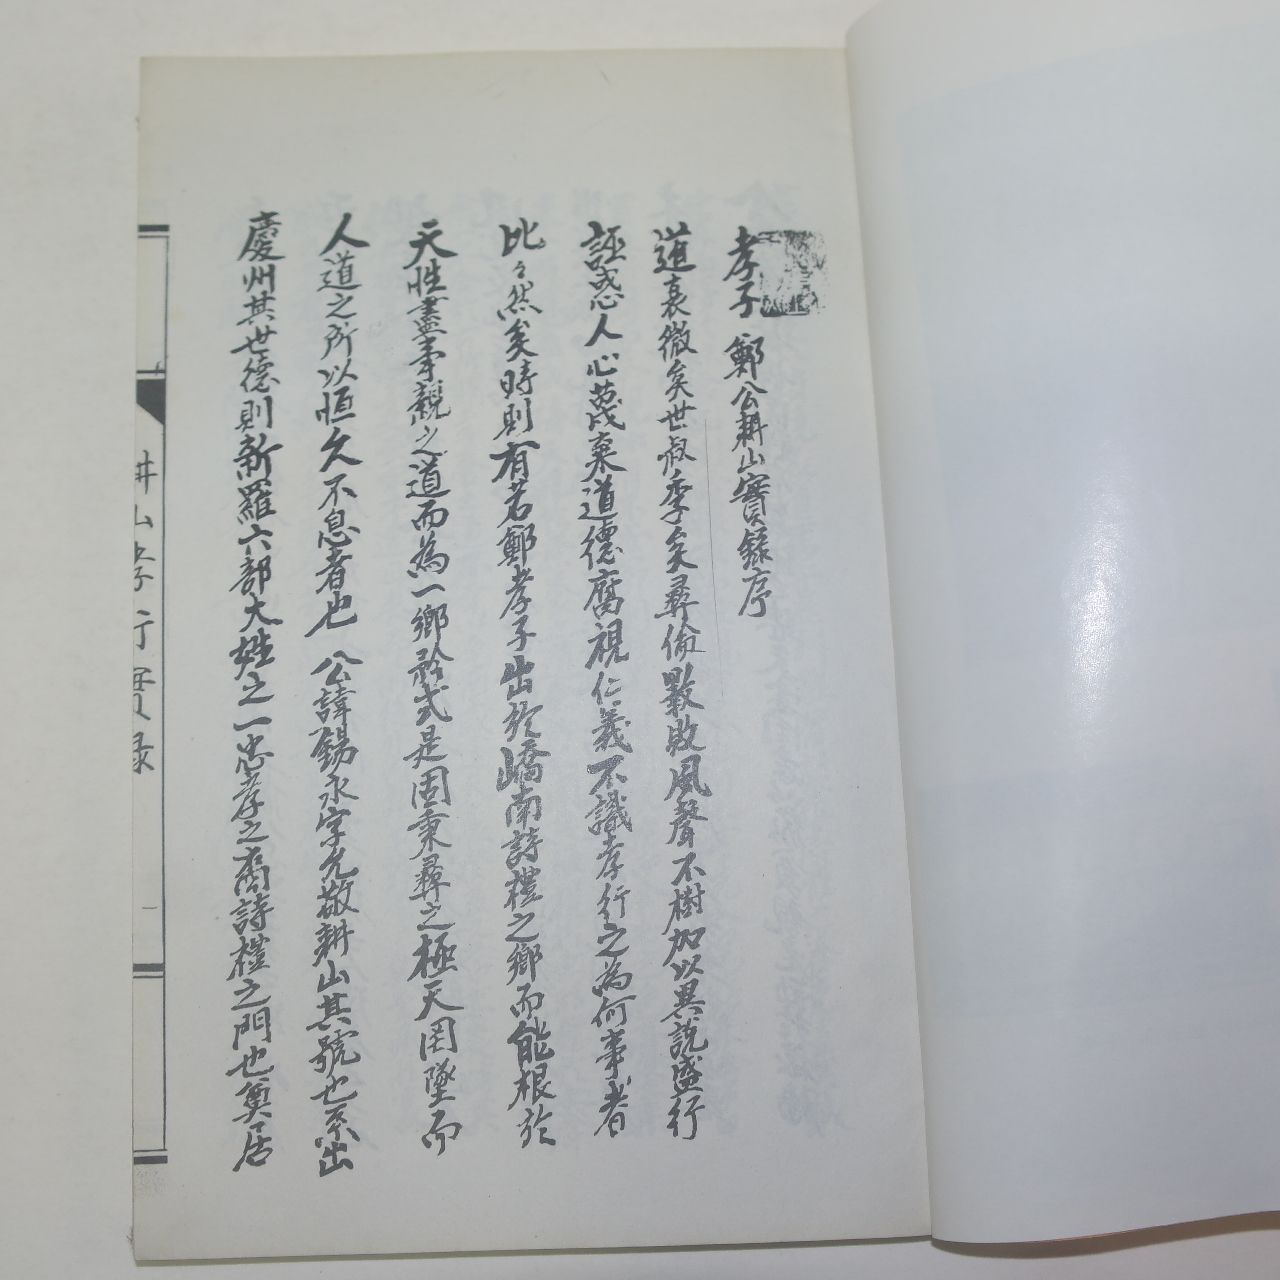 孝子 鄭公耕山實錄序
道衰微矣世叔季矣彛倫斁敗風聲不樹加以異說盛行
誣惑人心蔑棄道德腐視仁義不識孝行之為何事者
比々然矣時則有若鄭孝子出於嶠南詩禮之鄉而能根於
天性盡事親之道而為一鄉矜式是固秉彛之極天罔墜而
人道之所以恒久不息者也 公諱錫永字允敬耕山其號也系出
慶州其世德則新羅六部大姓之一忠孝之裔詩禮之門也奠居
耕山孝行實录
一